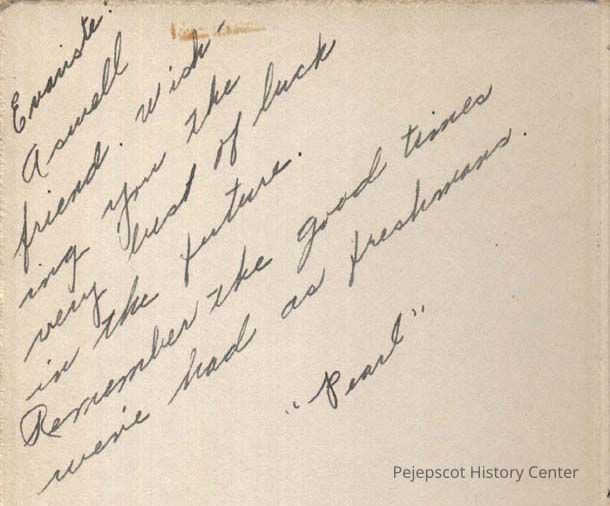 Evariste:
A swell
friend. Wish-
ing you the
very best of luck
in the future.
Remember the good times
we've had as freshmans.
"Pearl"
Pejepscot History Center